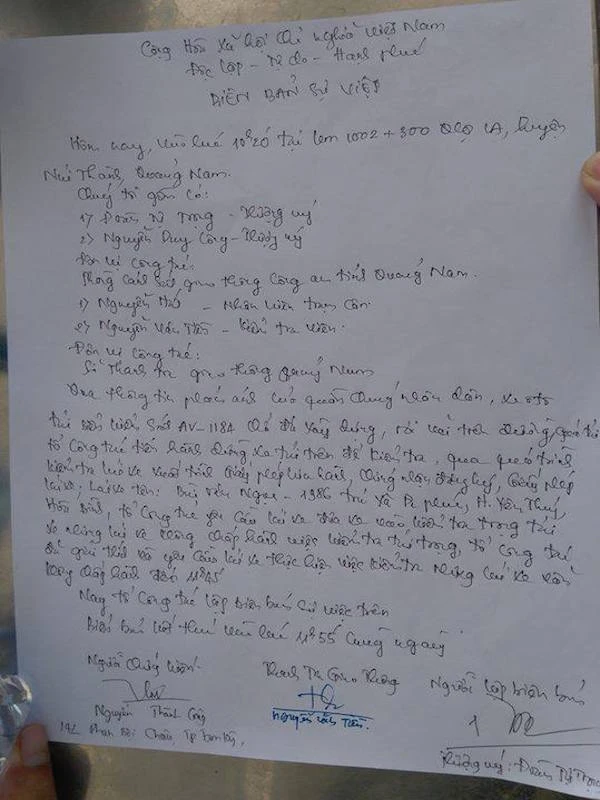 Cộng Hòa Xã hội Chủ nghĩa Việt Nam
Độc lập - Tự do - Hạnh phúc
BIÊN BẢN SỰ VIỆC
Hôm nay, vào lúc 10h20 tại km 1002 + 300 QLộ 1A, huyện
Núi Thành, Quảng Nam.
Chúng tôi gồm có:
1) Đoàn Tự Trọng - Thượng uý
2) Nguyễn Duy Công - Thượng uý
Đơn vị công tác:
Phòng cảnh sát giao thông Công an tỉnh Quảng Nam.
1) Nguyễn - Nhân viên trạm cân
2) Nguyễn Văn Tiến - kiểm tra viên.
Đơn vị công tác:
Sở Thanh tra giao thông Quảng Nam
Qua thông tin phản ánh của quần chúng nhân dân, xe oto
tải biển kiểm soát chở đá xây dựng, rơi vãi trên đường,
tổ công tác tiến hành dừng xe tải trên để kiểm tra, qua quá trình
kiểm tra lái xe xuất trình Giấy phép lái xe, chứng nhận đăng ký,
lái xe tên: Bùi Văn Ngọc - 1986 trú xã H. Yên Thuỷ,
Hòa Bình, tổ công tác yêu cầu lái xe đưa xe vào kiểm tra trọng tải
nhưng lái xe không chấp hành việc kiểm tra tải trọng, tổ công tác
đã giải thích và yêu cầu lái xe thực hiện việc kiểm tra nhưng lái xe vẫn
không chấp hành đến 11h45
Nay tổ công tác lập biên bản sự việc trên
Biên bản kết thúc vào lúc 11h55 cùng ngày
Người chứng kiến Thanh Tra Giao Thông Người lập biên bản
Nguyễn Thành Công Nguyễn Văn Tiến.
Phan Bội Châu, Tp Tam Kỳ, Thượng uý: Đoàn Tự Trọng